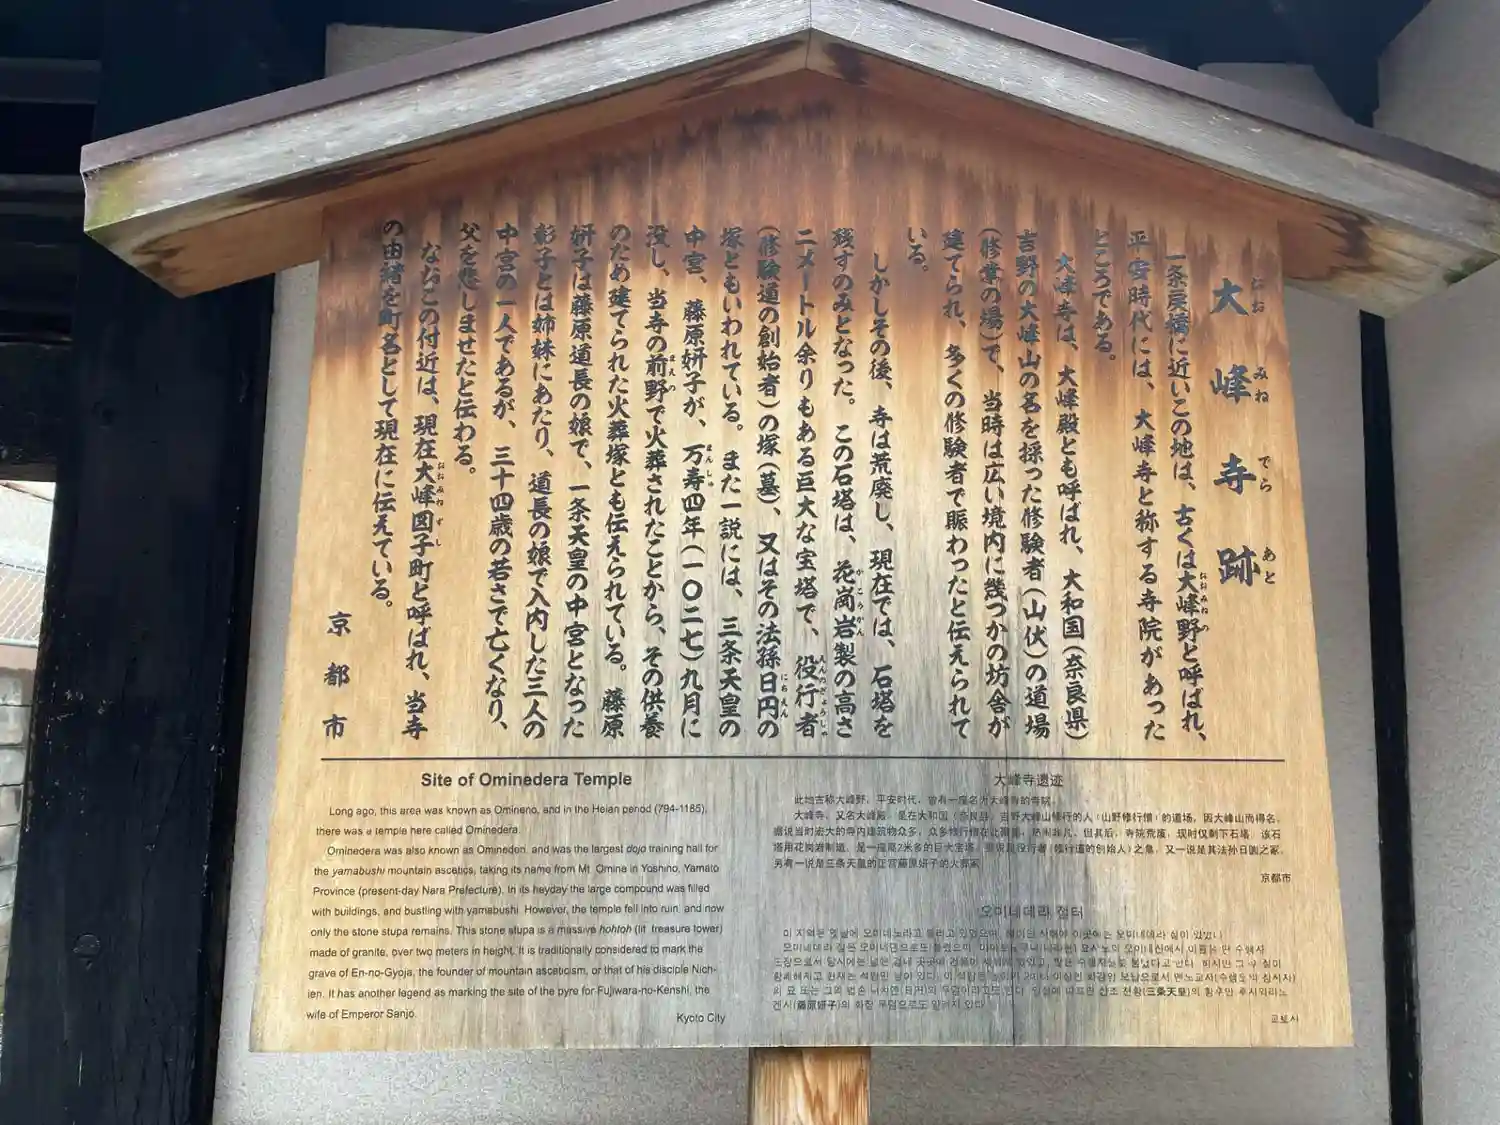 大峰寺跡
一条戻橋に近いこの地は、古くは大峰野と呼ばれ、
平安時代には、大峰寺と称する寺院があった
ところである。
大峰寺は、大峰殿とも呼ばれ、大和国(奈良県)
吉野の大峰山の名を採った修験者(山伏)の道場
(修業の場)で、当時は広い境内に幾つかの坊舎が
建てられ、多くの修験者で賑わったと伝えられて
いる。
しかしその後、寺は荒廃し、現在では、石塔を
残すのみとなった。この石塔は、花崗岩製の高さ
二メートル余りもある巨大な宝塔で、役行者
(修験道の創始者)の塚(墓)、又はその法孫日円の
塚ともいわれている。また一説には、三条天皇の
中宮、藤原妍子が、万寿四年(一〇二七)九月に
没し、当寺の前野で火葬されたことから、その供養
のため建てられた火葬塚とも伝えられている。藤原
妍子は藤原道長の娘で、一条天皇の中宮となった
彰子とは姉妹にあたり、道長の娘で入内した三人の
中宮の一人であるが、三十四歳の若さで亡くなり、
父を悲しませたと伝わる。
なおこの付近は、現在大峰図子町と呼ばれ、当寺
の由緒を町名として現在に伝えている。
京都市
Site of Ominedera Temple
Long ago, this area was known as Omineno, and in the Heian period (794-1185),
there was a temple here called Ominedera.
Ominedera was also known as Omineden, and was the largest dojo training hall for
the yamabushi mountain ascetics, taking its name from Mt. Omine in Yoshino, Yamato
Province (present-day Nara Prefecture). In its heyday the large compound was filled
with buildings, and bustling with yamabushi. However, the temple fell into ruin, and now
only the stone stupa remains. This stone stupa is a massive hohtoh (lit. treasure tower)
made of granite, over two meters in height. It is traditionally considered to mark the
grave of En-no-Gyoja, the founder of mountain asceticism, or that of his disciple Nich-
ien. It has another legend as marking the site of the pyre for Fujiwara-no-Kenshi, the
wife of Emperor Sanjo.
Kyoto City
大峰寺遗迹
此地古称大峰野，平安时代，曾有一座名为大峰寺的寺院。
大峰寺，又名大峰殿，是在大和国（奈良县）吉野大峰山修行的人（山野修行僧）的道场，因大峰山而得名。
据说当时宏大的寺内建筑物众多，众多修行僧在此
寺院荒废，现时仅剩下石塔，该石
塔用花岗岩制造，是一座高2米多的巨大宝塔，
役行者（修行道的创始人）之墓，又一说是其法孙日圆之冢，
另有一说是三条天皇的正宫藤原妍子的火葬冢
京都市
오미네데라 절터
(三条天皇)의
겐시(藤原妍子)의 화장 무덤으로도 알려져 있다
교토시